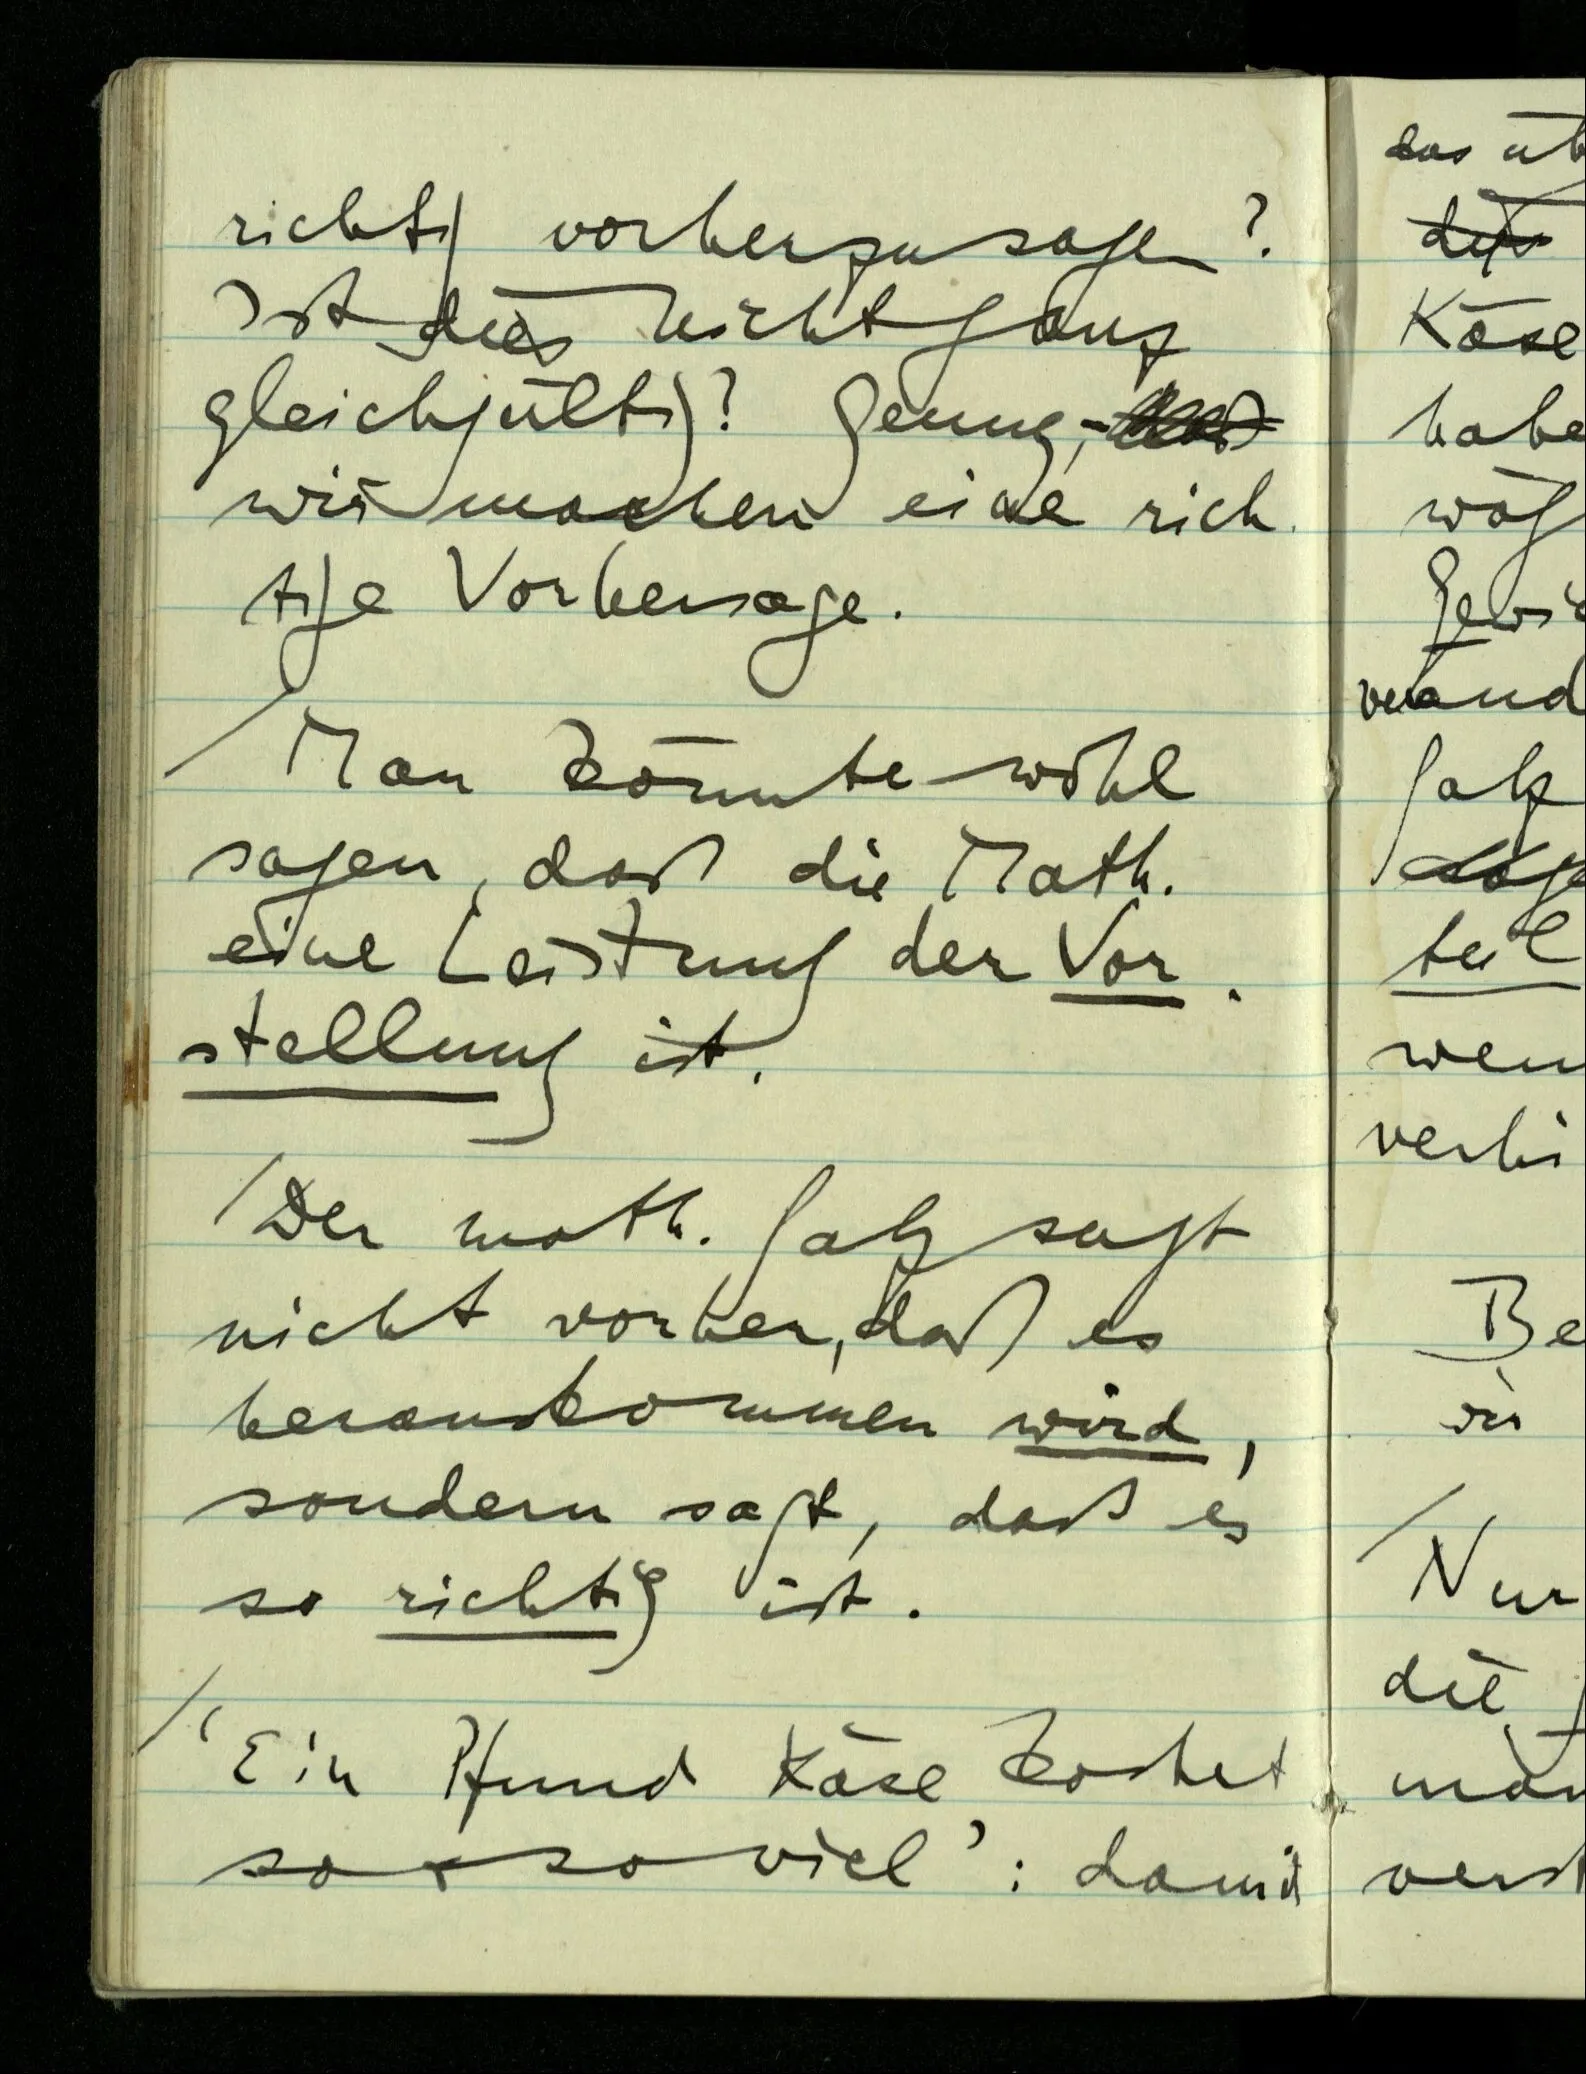 richtig vorherzusagen?
Ist dies nicht ganz
gleichgültig? Genug,
wir machen eine rich
tige Vorhersage.
/ Man könnte wohl
sagen, daß die Math.
eine Leistung der Vor-
stellung ist.
/ Der math. Satz sagt
nicht vorher, daß es
herauskommen wird,
sondern sagt, daß es
so richtig ist.
/ ‘Ein Pfund Käse kostet
so & so viel’: damit
das üb
das
Käse
habe
wäg
Gewi
verand
Satz
teil
wen
verhi
Be
/ Nur
die
man
verst